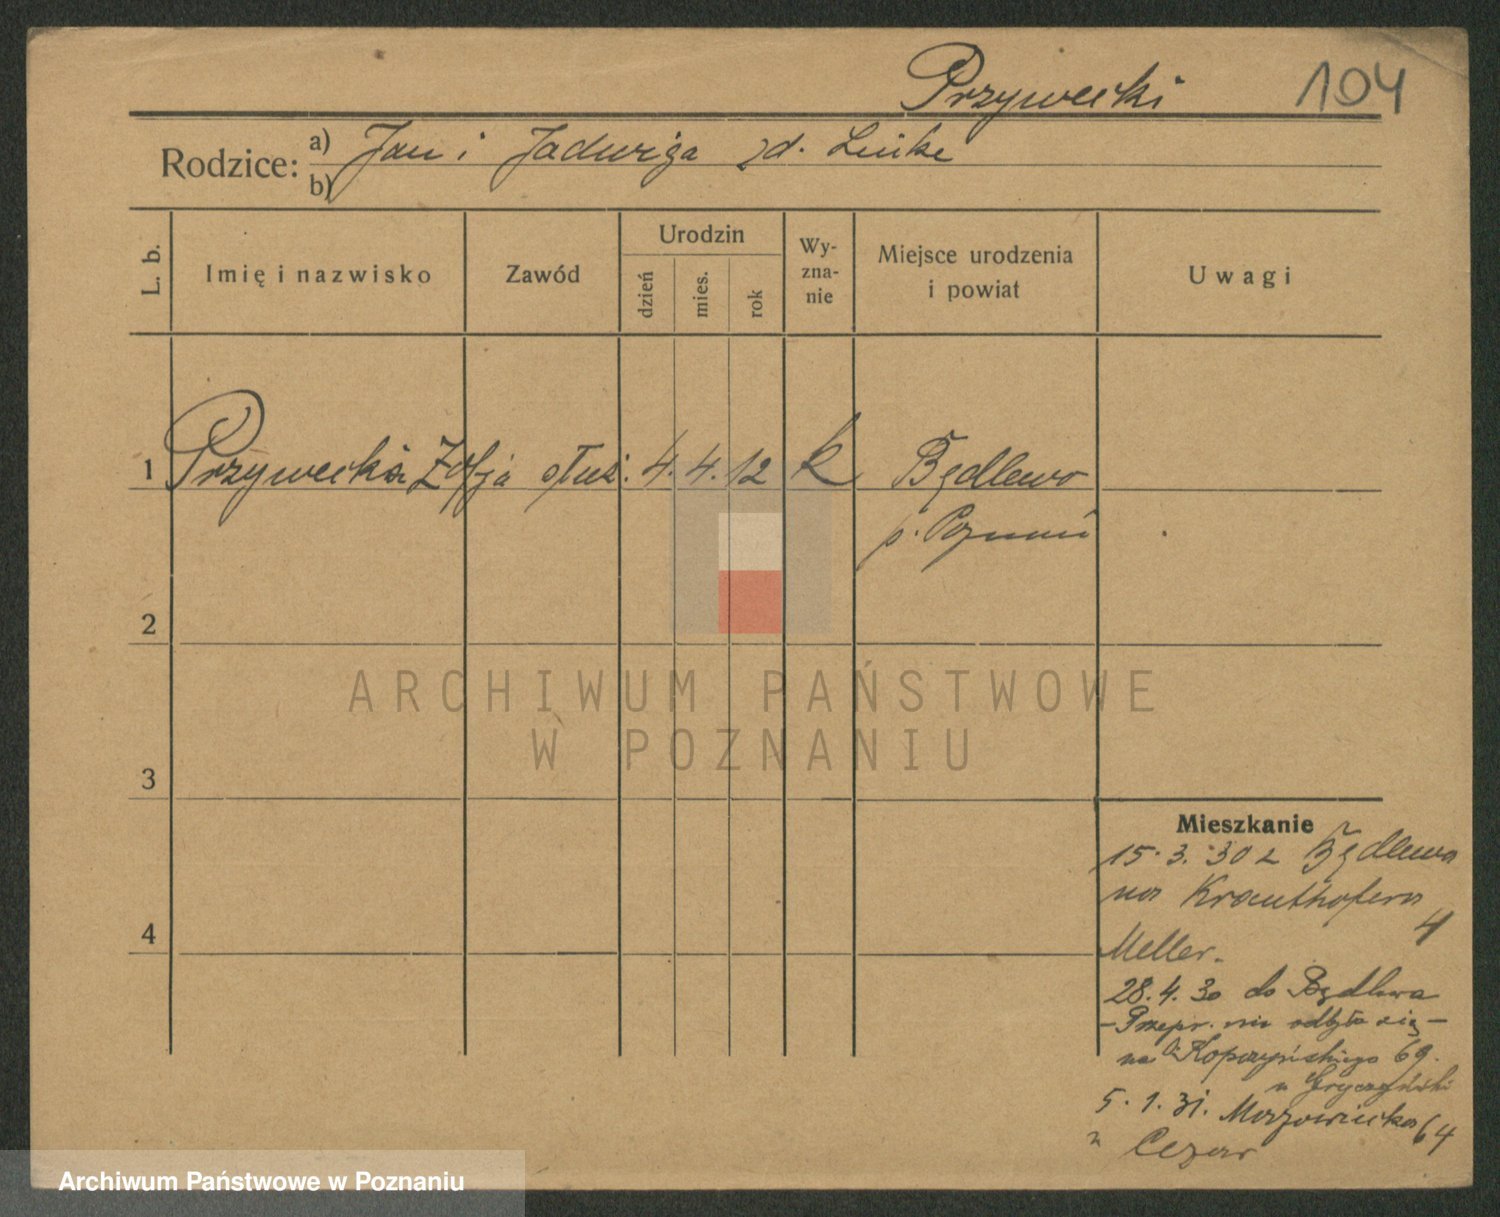 Przywecki 104
Rodzice: a) Jan i Jadwiga zd. Linke
b)
L. b. Imię i nazwisko Zawód Urodzin dzień mies. rok Wy-zna-nie Miejsce urodzenia i powiat Uwagi
1 Przywecka Zofja służ. 4. 4. 12 k Będlewo
p. Poznań
2
ARCHIWUM PAŃSTWOWE
W POZNANIU
3
Mieszkanie
15. 3. 30 z Będlewa
na Krauthofera
4
4
Meller.
28. 4. 30 do Będlewa
- Przepr. nie odbyła się -
na Kopczyńskiego 69.
u Gryczyński
5. 1. 31. Mazowiecka 64
u Cezar
Archiwum Państwowe w Poznaniu